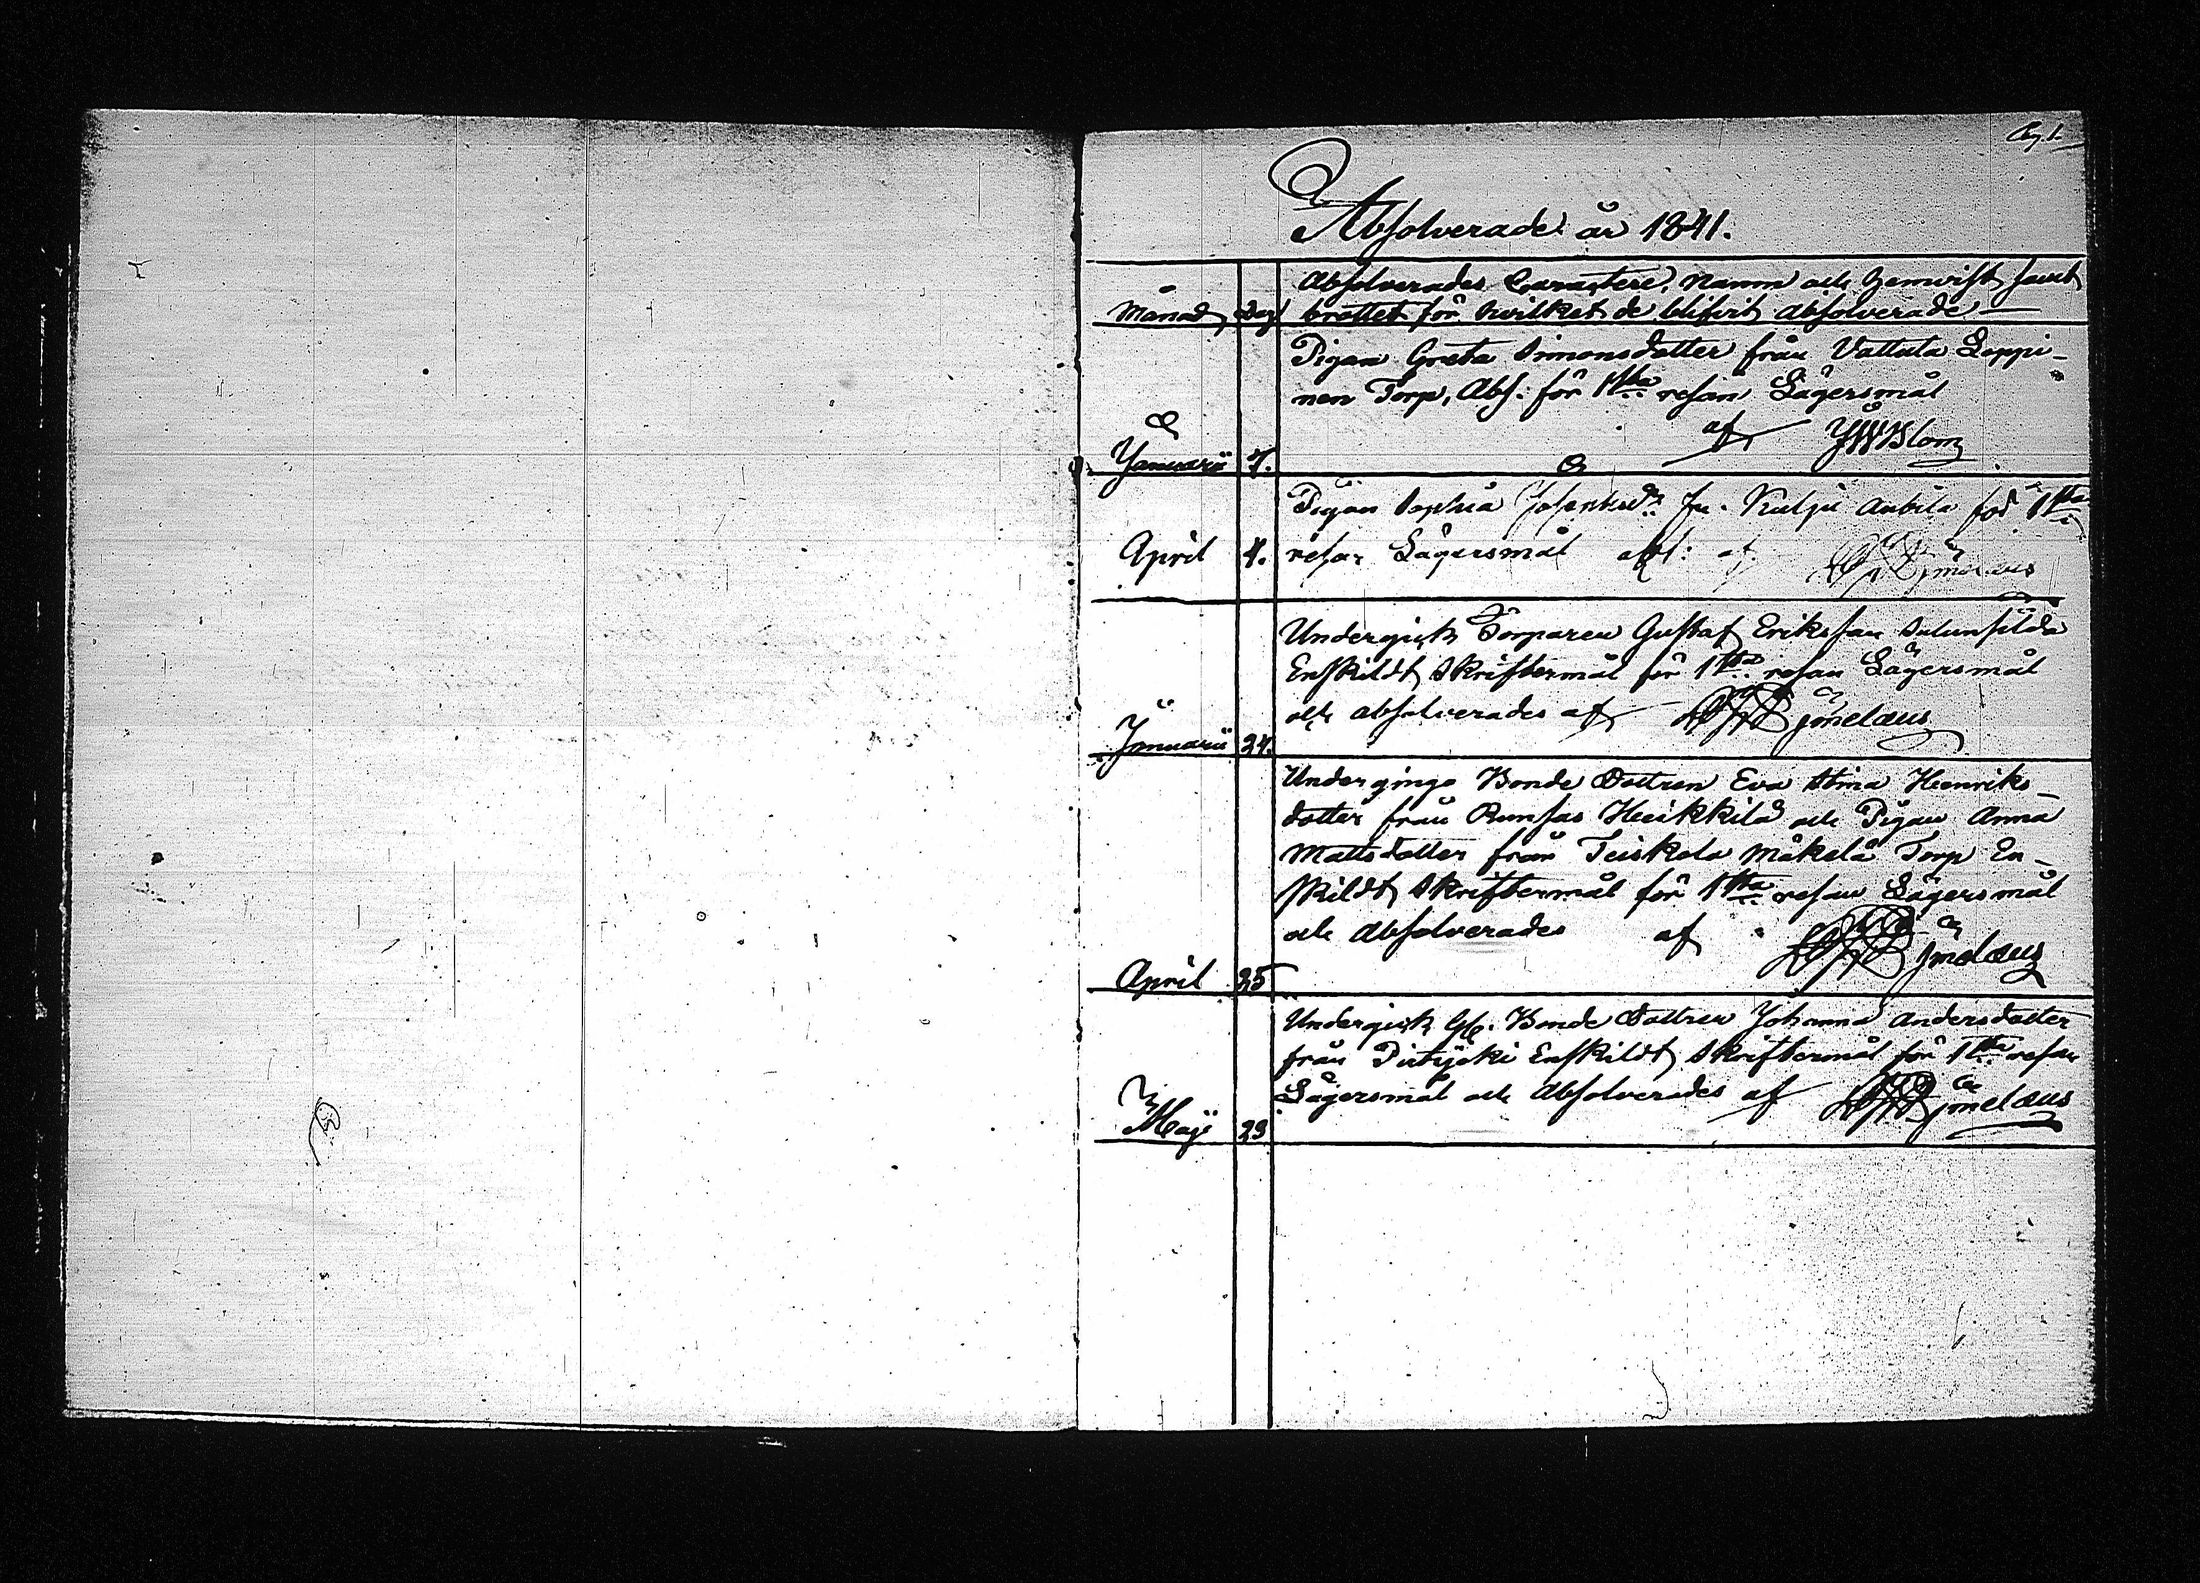 Pag. 1.
Absolverade år 1841.
Månad, Dag
Absolverades Caractere, Namn och Hemvist, samt
brottet för hvilket de blifvit absolverade —
Pigan Greta Simonsdotter från Vattula Seppi-
nen Torp, Abs: för 1sta resan Lägersmål
Januarii 7. af JWBlom
Pigan Sophia fr. Kulju Anbila för 1sta
April 4. resan Lägersmål abs: af
Undergick Torparen Gustaf Eriksson
Enskildt Skriftermål för 1sta resan Lägersmål
och absolverades af
Januarii 24.
Undergingo Bonde Dottren Eva Stina Henriks-
dotter från Heikkilä och Pigan Anna
Mattsdotter från Teiskola Mäkelä Torp En-
skildt Skriftermål för 1sta resan Lägersmål
och Absolverades af
April 25
Undergick Bonde Dottren Johanna Andersdotter
från Enskildt Skriftermål för 1sta resan
Lägersmål och Absolverades af
Maji 23